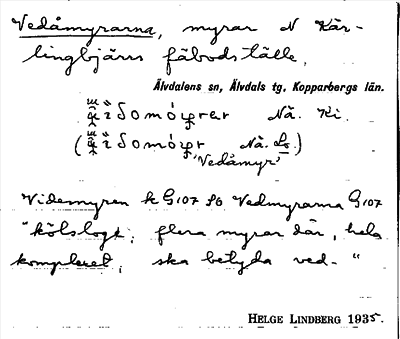 Vedåmyrarna, myrar N Kär-
lingbjärs fäbodställe.
Älvdalens sn, Älvdals tg. Kopparbergs län.
Nä. Ki.
Nä. Lo.)
'Vedåmyr'
Videmyren k G107 so Vedmyrarna G107
"kölsloge; flera myrar där, hela
komplexet; ska betyda ved- "
HELGE LINDBERG 1935.